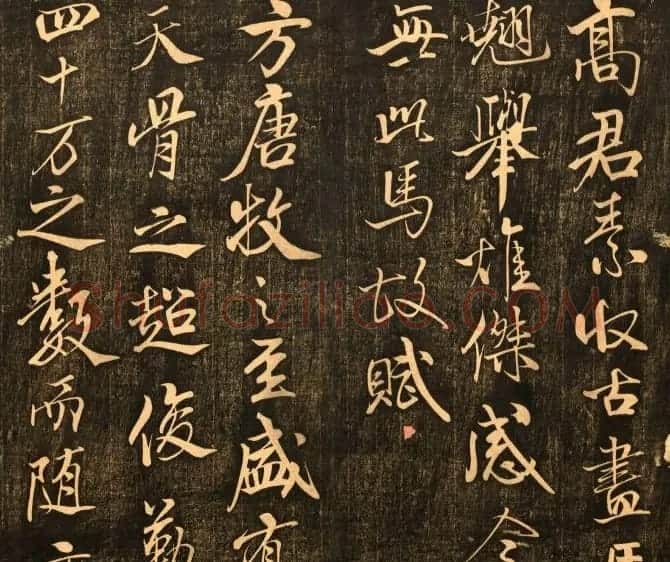 髙君素收古畫
翹舉雄傑感今
無此馬故賦
方唐牧之至盛有
天骨之超俊勒
四十万之數而随
Shufaziliao.COM